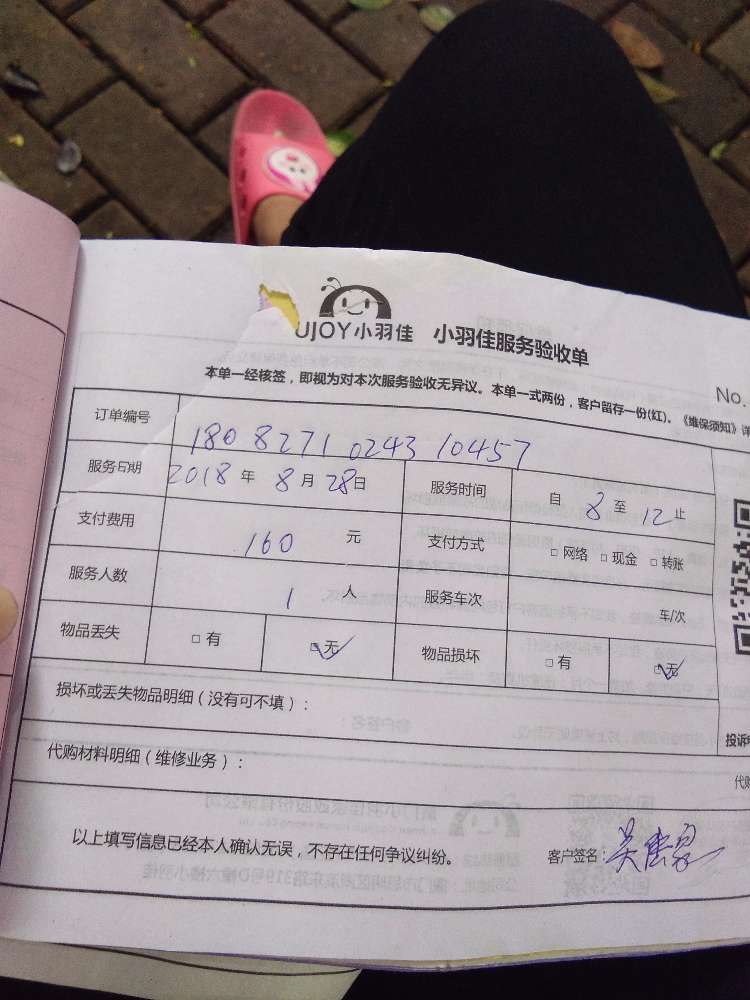 UJOY小羽佳 小羽佳服务验收单
No.
本单一经核签，即视为对本次服务验收无异议。本单一式两份，客户留存一份(红)。《维保须知》详
订单编号 180827102431 0457
服务日期 2018年8月28日 服务时间 自8至12止
支付费用 160元 支付方式 □网络 □现金 □转账
服务人数 1人 服务车次 车/次
物品丢失 □有 ☑无 物品损坏 □有 ☑无
损坏或丢失物品明细（没有可不填）：
投诉电
代购材料明细（维修业务）：
代购
以上填写信息已经本人确认无误，不存在任何争议纠纷。 客户签名：